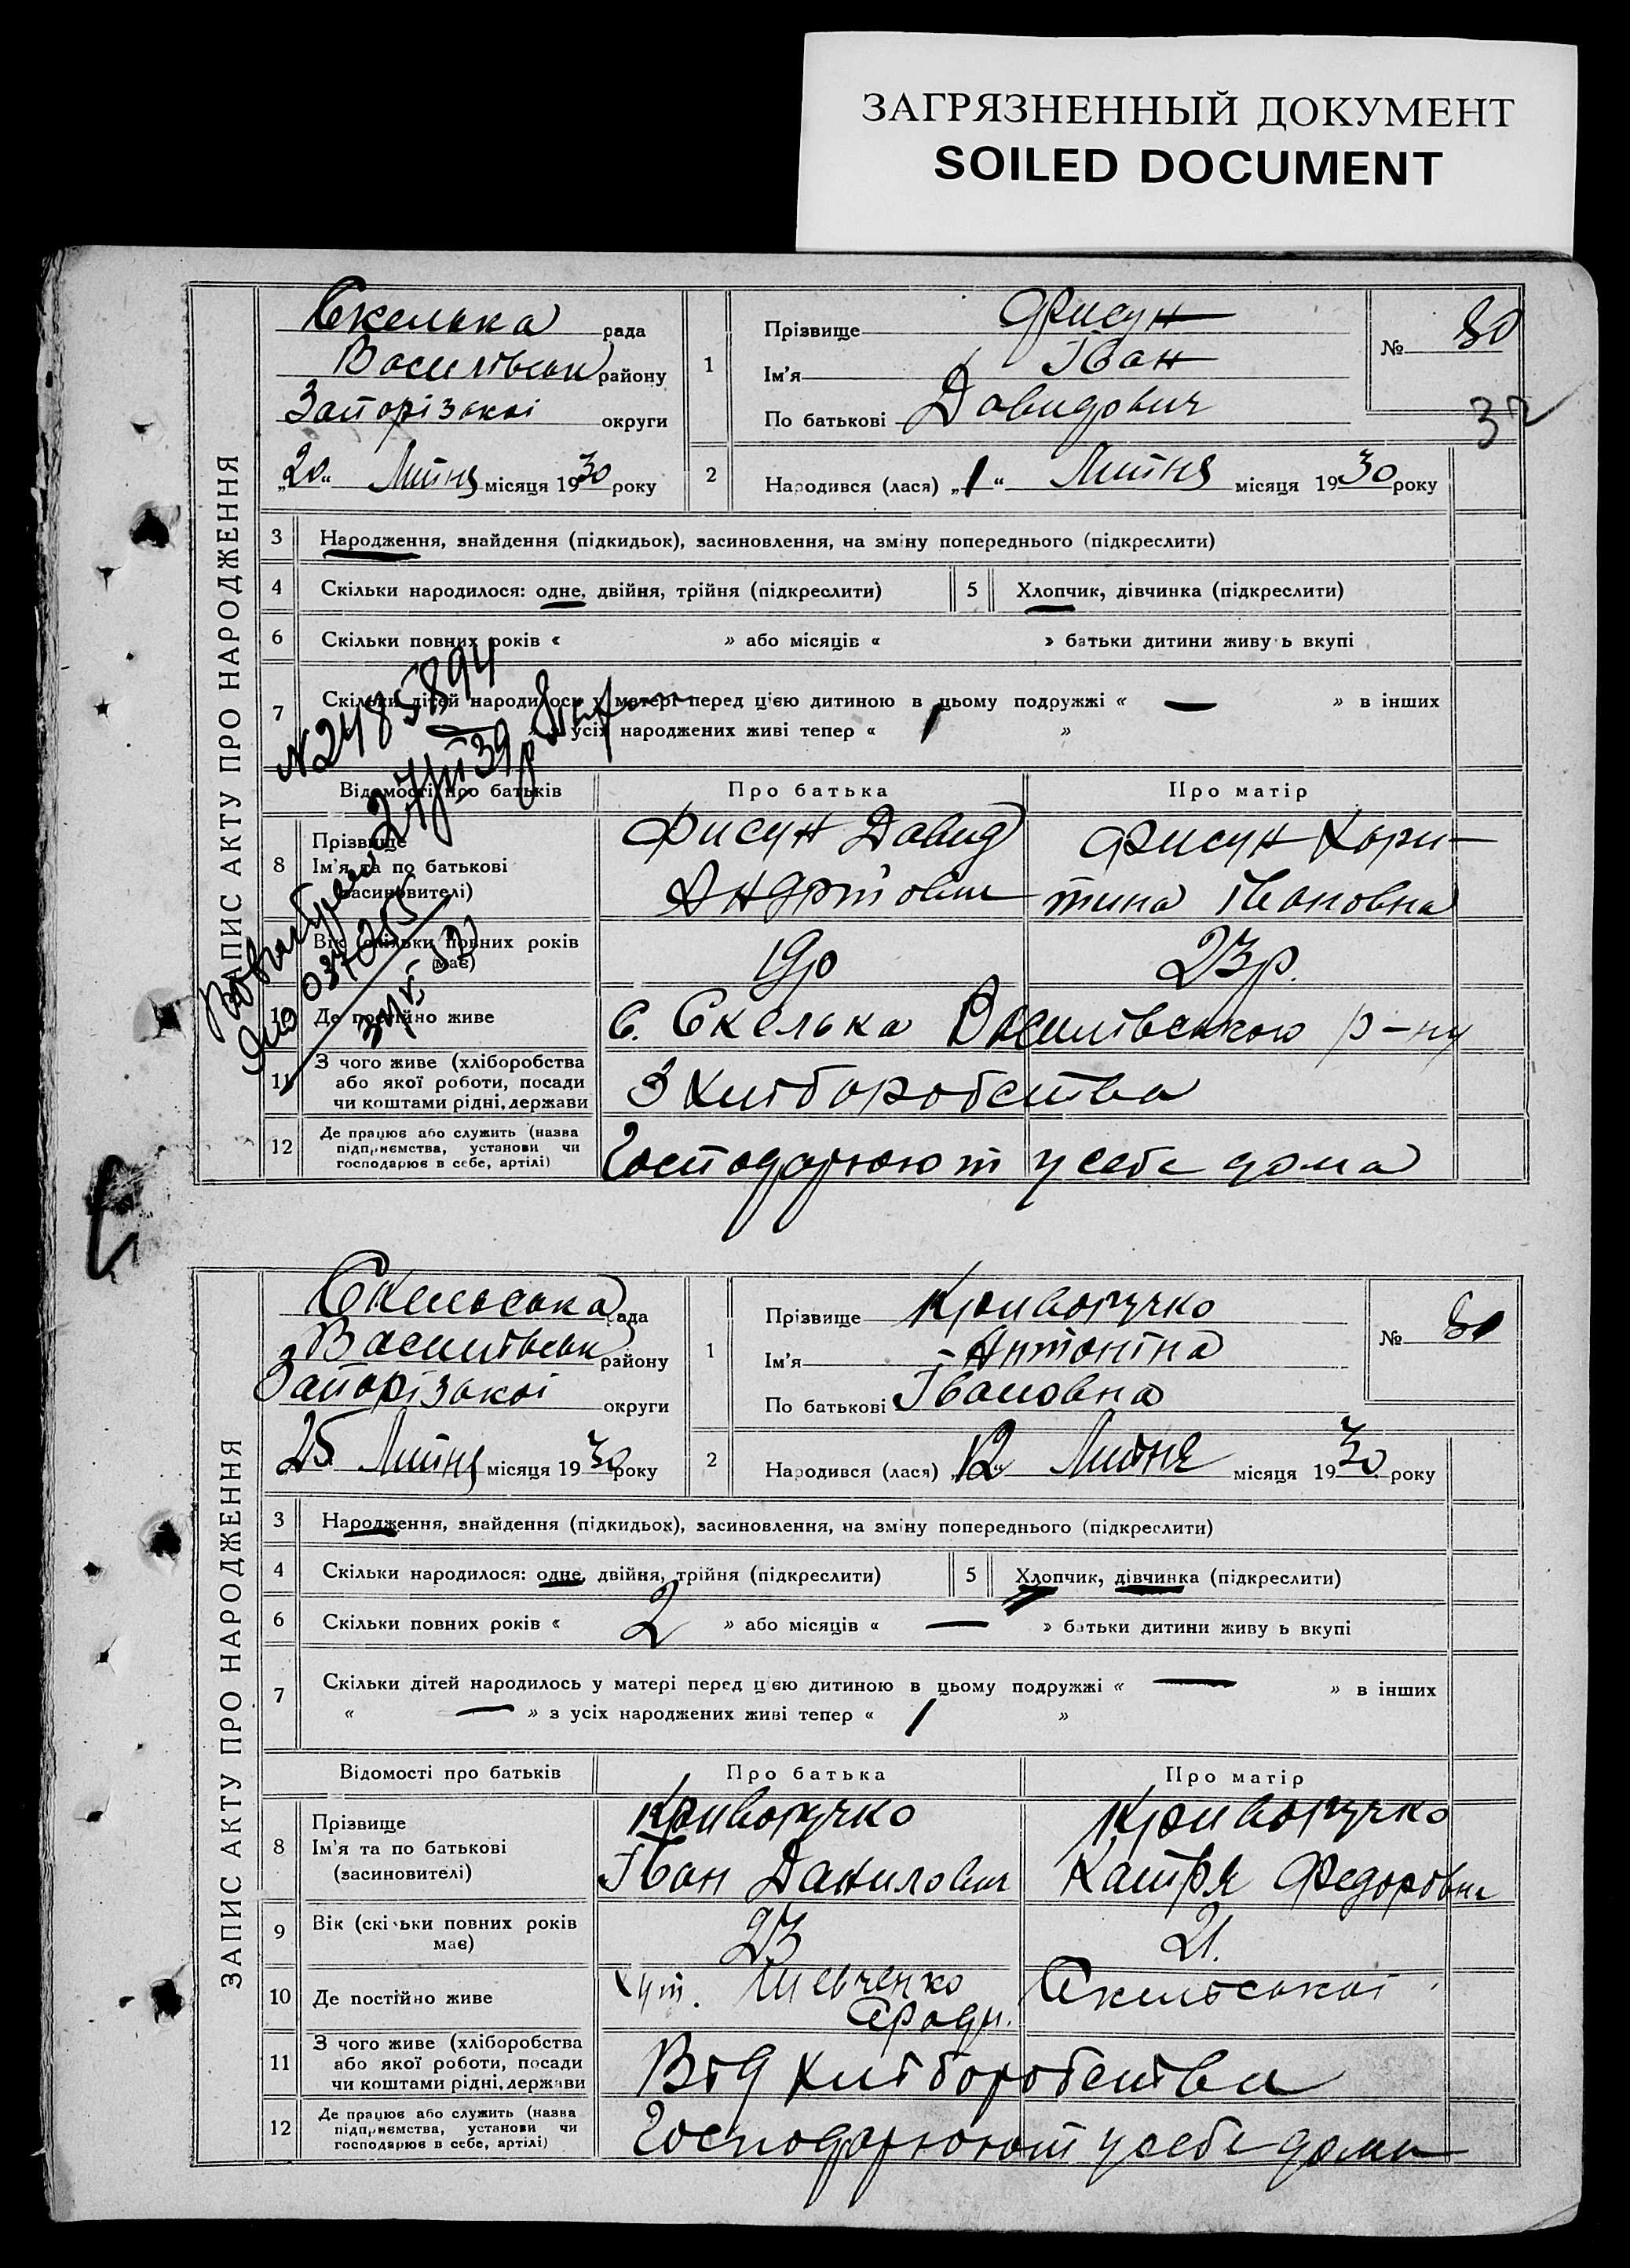 ЗАГРЯЗНЕННЫЙ ДОКУМЕНТ
SOILED DOCUMENT
ЗАПИС АКТУ ПРО НАРОДЖЕННЯ
Скелька рада
Василівськ району
Запорізької округи
„20“ Липня місяця 1930 року
1
Прізвище Фисун
Ім'я Іван
По батькові Давидович
№ 80
32
2
Народився (лася) „1“ Липня місяця 1930 року
3 Народження, знайдення (підкидьок), засиновлення, на зміну попереднього (підкреслити)
4 Скільки народилося: одне, двійня, трійня (підкреслити) 5 Хлопчик, дівчинка (підкреслити)
6 Скільки повних років « » або місяців « » батьки дитини живу ь вкупі
7 Скільки дітей народилось у матері перед цією дитиною в цьому подружжі « — » в інших
— » з усіх народжених живі тепер « 1 »
Відомості про батьків Про батька Про матір
8 Прізвище
Ім'я та по батькові
(засиновителі)
Фисун Давид
Андрійович
Фисун Хари-
тина Івановна
Вік (скільки повних років
має)
19р
23р.
10 Де постійно живе С. Скелька Василівського р-ну
11 З чого живе (хліборобства
або якої роботи, посади
чи коштами рідні, держави
З Хліборобства
12 Де працює або служить (назва
підприємства, установи чи
господарює в себе, артілі)
Господарюют у себе дома
№ 2485894
ЗАПИС АКТУ ПРО НАРОДЖЕННЯ
Скельська рада
Василівськ району
Запорізької округи
25 Липня місяця 1930 року
1
Прізвище Криворучко
Ім'я Антоніна
По батькові Івановна
№ 81
2
Народився (лася) „12“ Липня місяця 1930 року
3 Народження, знайдення (підкидьок), засиновлення, на зміну попереднього (підкреслити)
4 Скільки народилося: одне, двійня, трійня (підкреслити) 5 Хлопчик, дівчинка (підкреслити)
6 Скільки повних років « 2 » або місяців « — » батьки дитини живу ь вкупі
7 Скільки дітей народилось у матері перед цією дитиною в цьому подружжі « — » в інших
« — » з усіх народжених живі тепер « 1 »
Відомості про батьків Про батька Про матір
8 Прізвище
Ім'я та по батькові
(засиновителі)
Криворучко
Іван Данилович
Криворучко
Катря Федоровна
9 Вік (скільки повних років
має)
23
21.
10 Де постійно живе Хут. Шевченко Скельської
С/ради.
11 З чого живе (хліборобства
або якої роботи, посади
чи коштами рідні, держави
Від хліборобства
12 Де працює або служить (назва
підприємства, установи чи
господарює в себе, артілі)
Господарюют у себе дома